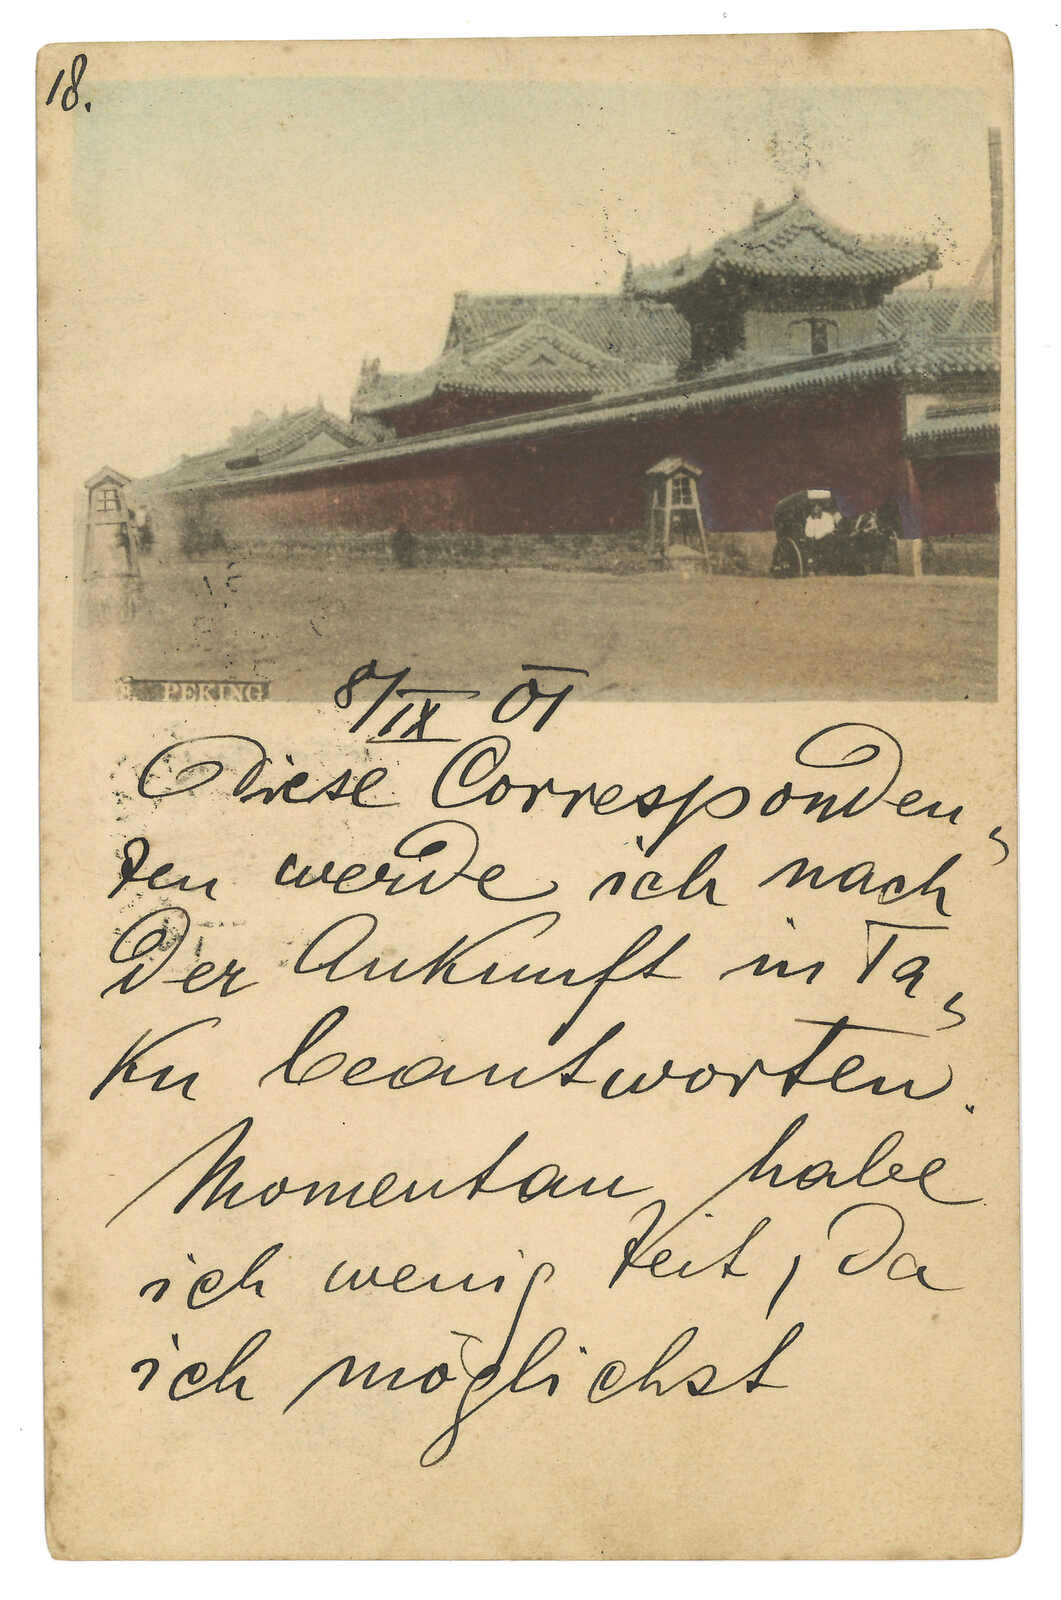 18.
PEKING
8/IX 01
Diese Corresponden-
zen werde ich nach
der Ankunft in Ta-
ku beantworten.
Momentan habe
ich wenig Zeit, da
ich möglichst